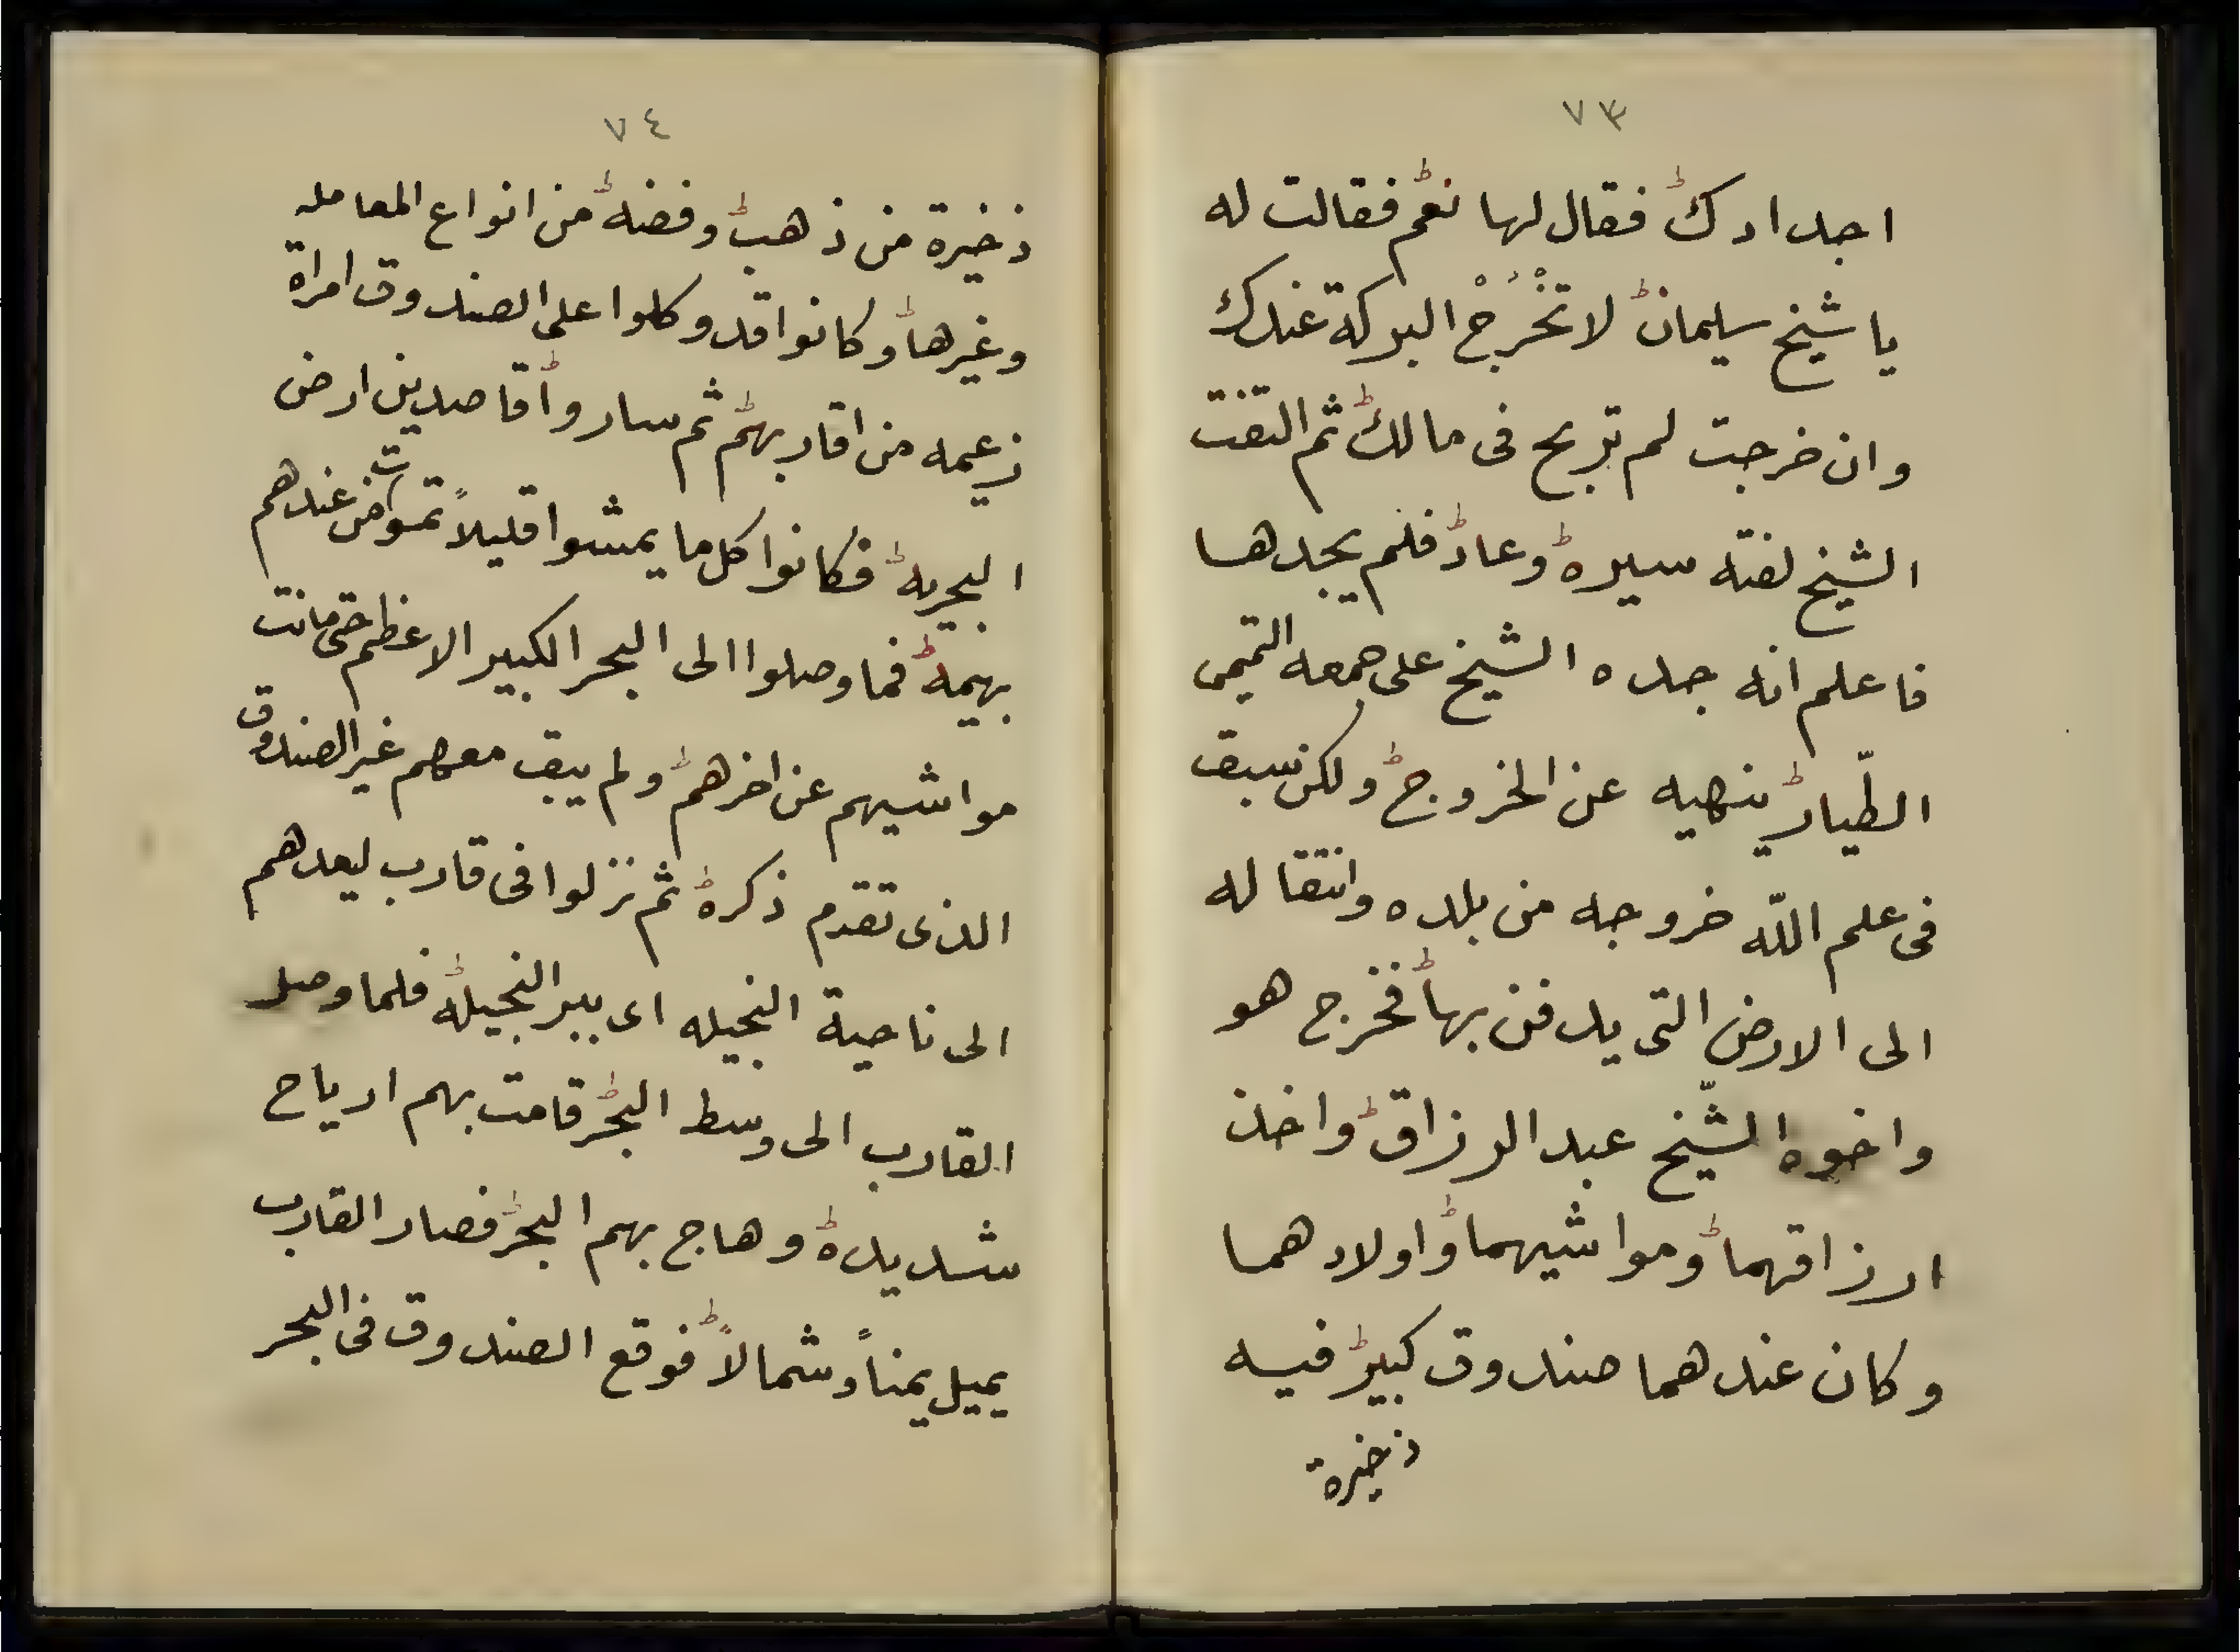 ٧٣
اجدادك فقال لها نعم فقالت له
يا شيخ سليمان لا تَخْرُجْ البركة عندك
وان خرجت لم تربح فى مالك ثم التفت
الشيخ لفتة سيره وعاد فلم يجدها
فاعلم انه جده الشيخ على جمعه التميمى
الطّيار ينهيه عن الخروج ولكن سبق
فى علم اللّه خروجه من بلده وانتقاله
الى الارض التى يدفن بها فخرج هو
واخوه الشّيخ عبد الرزاق واخذ
ارزاقهما ومواشيهما واولادهما
وكان عندهما صندوق كبير فيه
ذخيرة
٧٤
ذخيرة من ذهب وفضه من انواع المعامله
وغيرها وكانوا قد وكلوا على الصندوق امراة
زعيمه من اقاربهم ثم ساروا قاصدين ارض
البحريه فكانوا كل ما يمشوا قليلاً تموت من عندهم
بهيمه فما وصلوا الى البحر الكبير الاعظم حتى ماتت
مواشيهم عن اخرهم ولم يبق معهم غير الصندوق
الذى تقدم ذكره ثم نزلوا فى قارب ليعدهم
الى ناحية النجيله اى بير النجيله فلما وصل
القارب الى وسط البحر قامت بهم ارياح
شديده وهاج بهم البحر فصار القارب
يميل يمناً وشمالاً فوقع الصندوق فى البحر